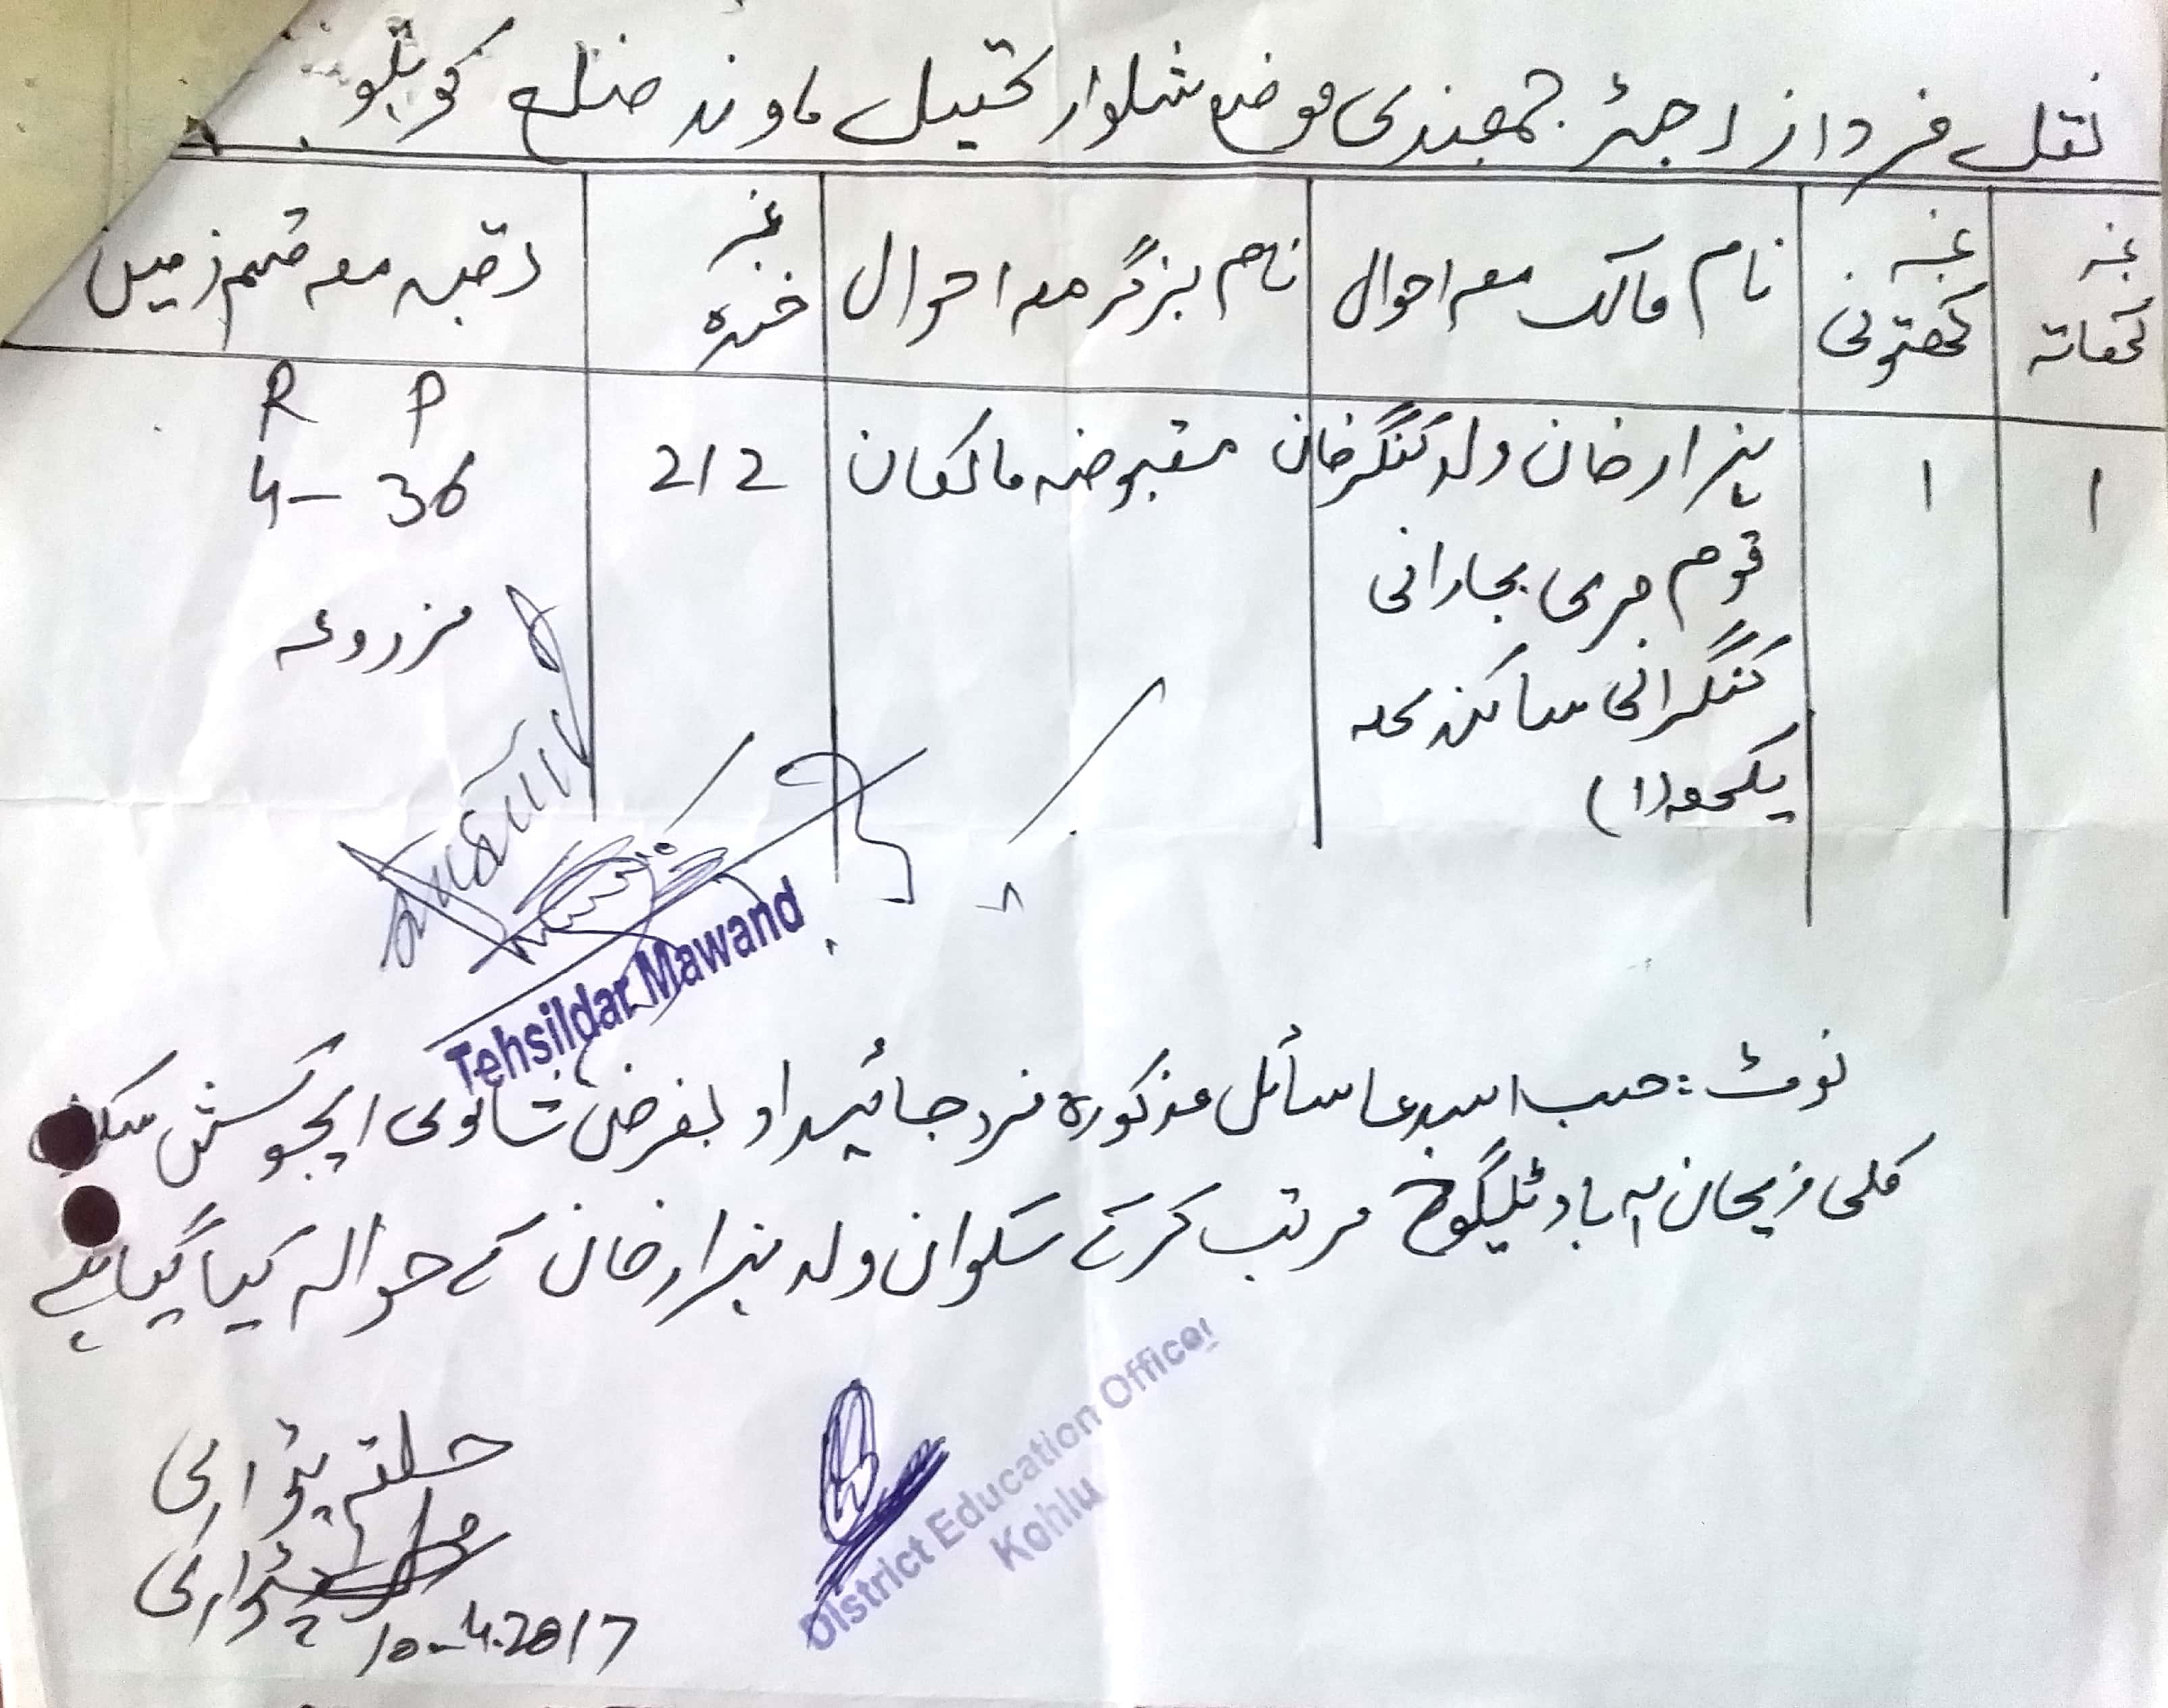 نقل فرد از رجسٹر جمعبندی موضع شلوار تحصیل ماوند ضلع کوہلو
نمبر کھاتہ
نمبر کھتونی
نام مالک معہ احوال
نام بزگر معہ احوال
نمبر خسرہ
رقبہ معہ قسم زمین
R P
۱
۱
ہزار خان ولد کنگر خان
مقبوضہ مالکان
212
4- 36
قوم مری بجارانی
مزروعہ
کنگرانی ساکن
(۱)
Tehsildar Mawand
نوٹ: حسب استدعا سائل مذکورہ فرد جائیداد بغرض ایجوکیشن
کلی آباد مرتب کر کے ولد ہزار خان کے حوالہ کیا گیا ہے
حلقہ پٹواری
پٹواری
10-4-2017
District Education Officer
Kohlu